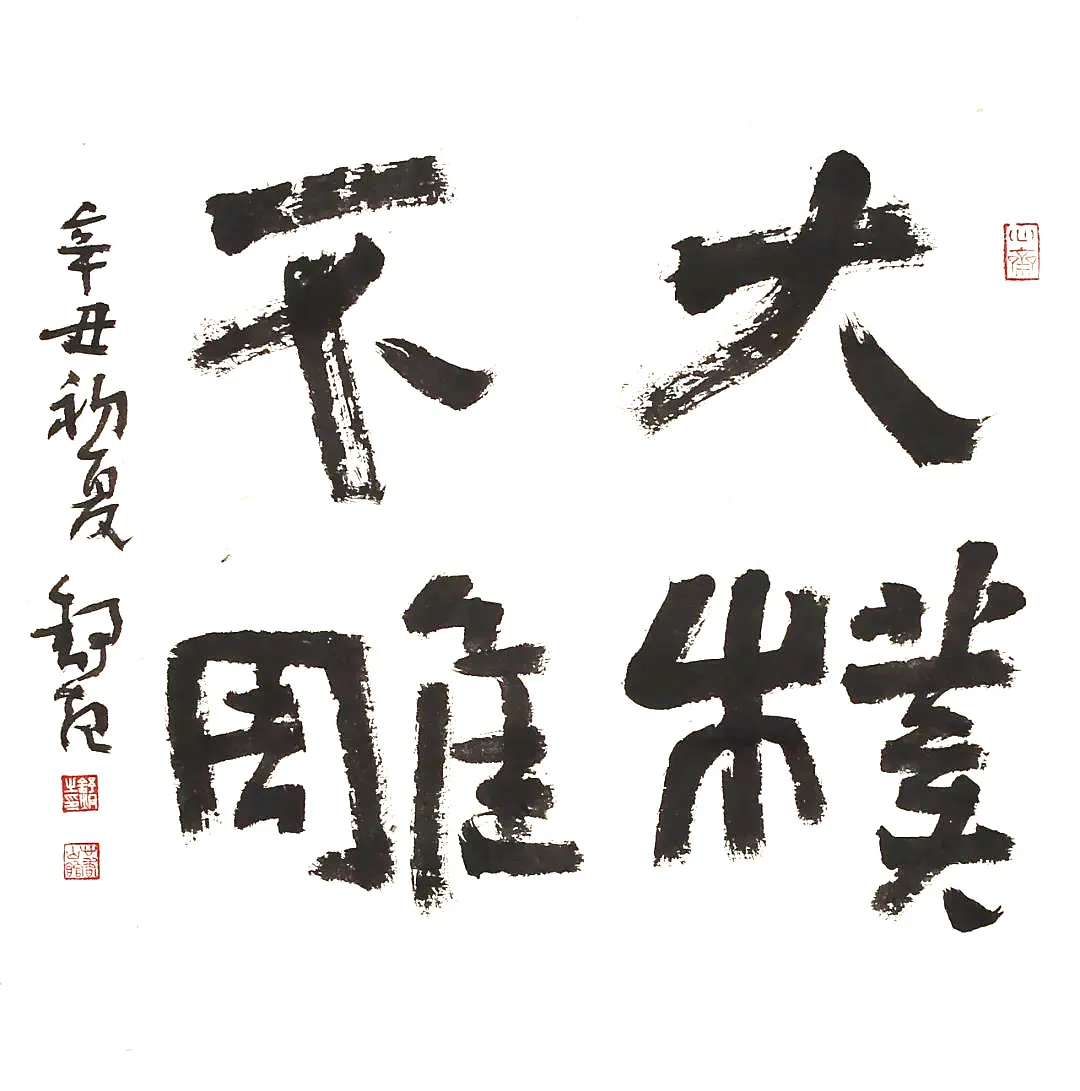 大樸
不雕
辛丑初夏
心齋